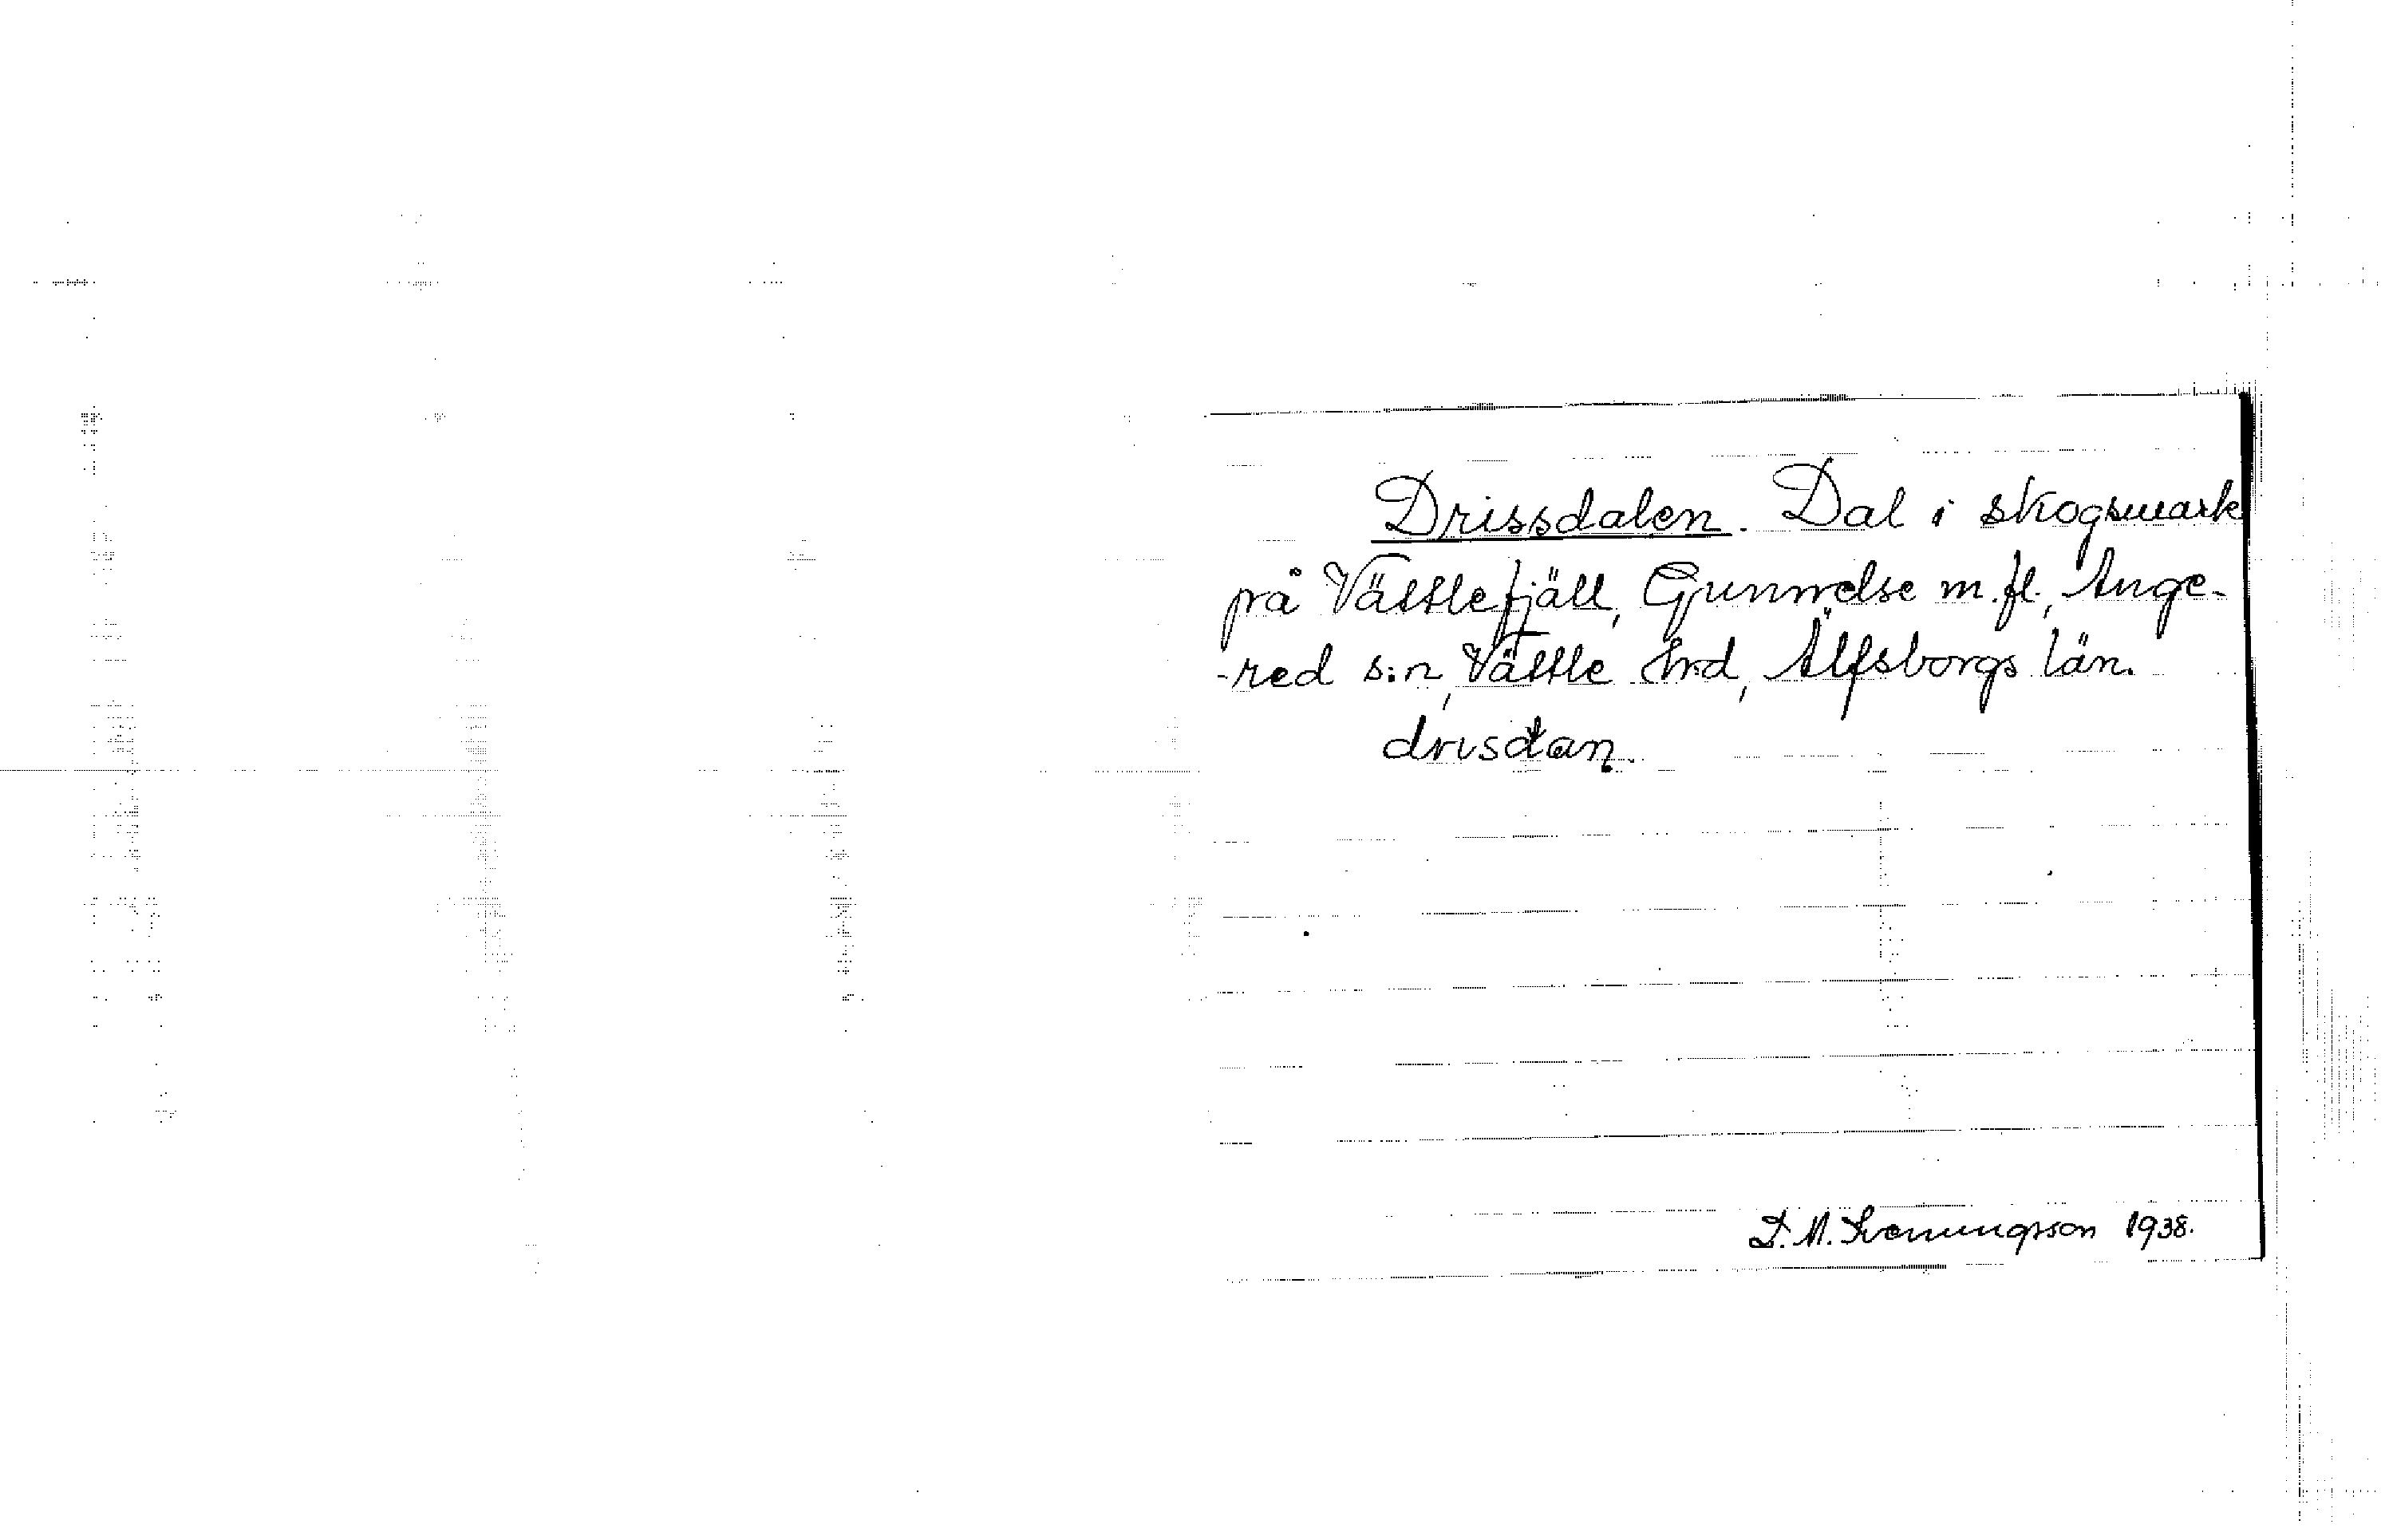 Drissdalen. Dal i skogsmark
på Vättlefjäll, Gunnelse m.fl., Ange-
-red s:n, Vättle hrd, Älfsborgs län.
drisdan.
1938.